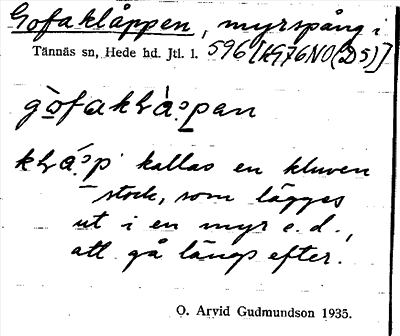 Gofaklåppen, myrspång i
Tännäs sn, Hede hd. Jtl. l. 596 [HG76NO(D5)]
kallas en kluven
stock, som lägges
ut i en myr e.d.,
att gå längs efter.
O. Arvid Gudmundson 1935.